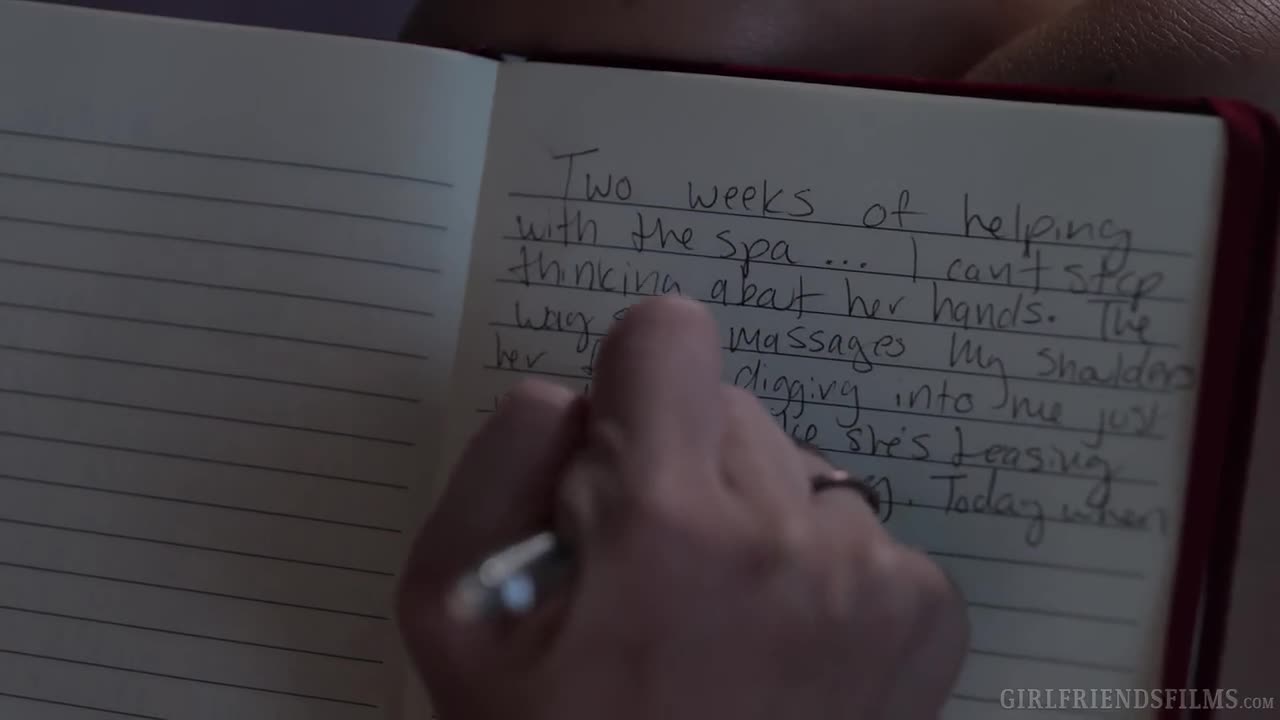 Two weeks of helping
with the spa ... I can't stop
thinking about her hands. The
way massages my shoulders
her digging into me just
she's teasing
Today when
GIRLFRIENDSFILMS.COM